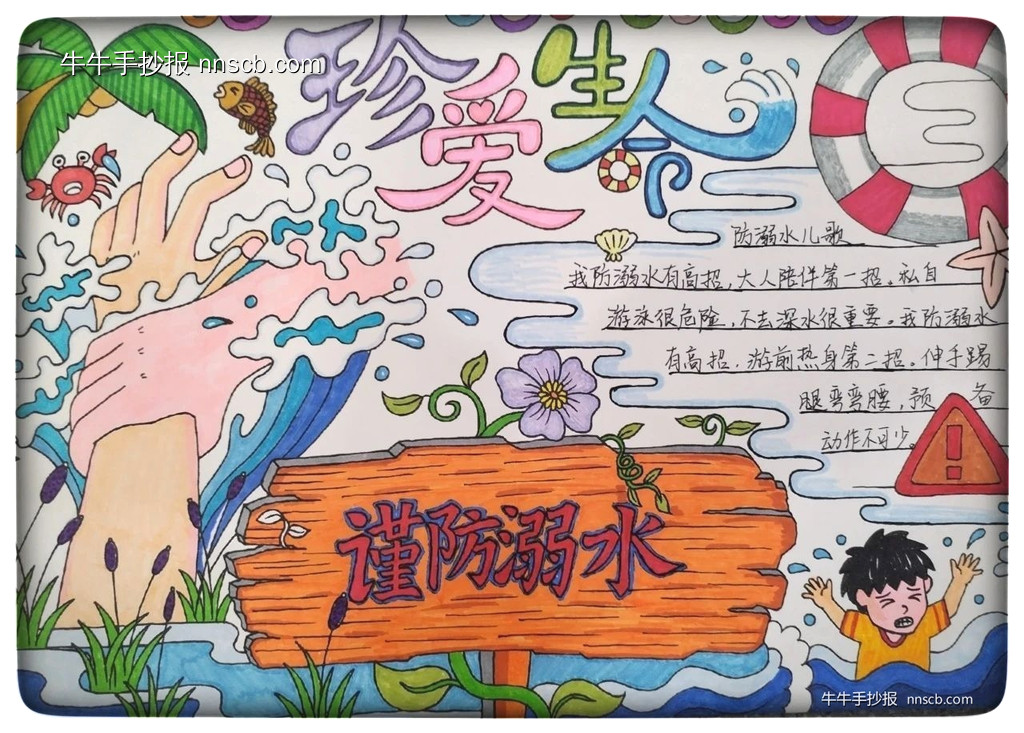 牛牛手抄报 nnscb.com
珍爱生命
防溺水儿歌
我防溺水有高招，大人陪伴第一招。私自
游泳很危险，不去深水很重要。我防溺水
有高招，游前热身第二招。伸手踢
腿弯弯腰，预 备
动作不可少。
!
谨防溺水
牛牛手抄报 nnscb.com